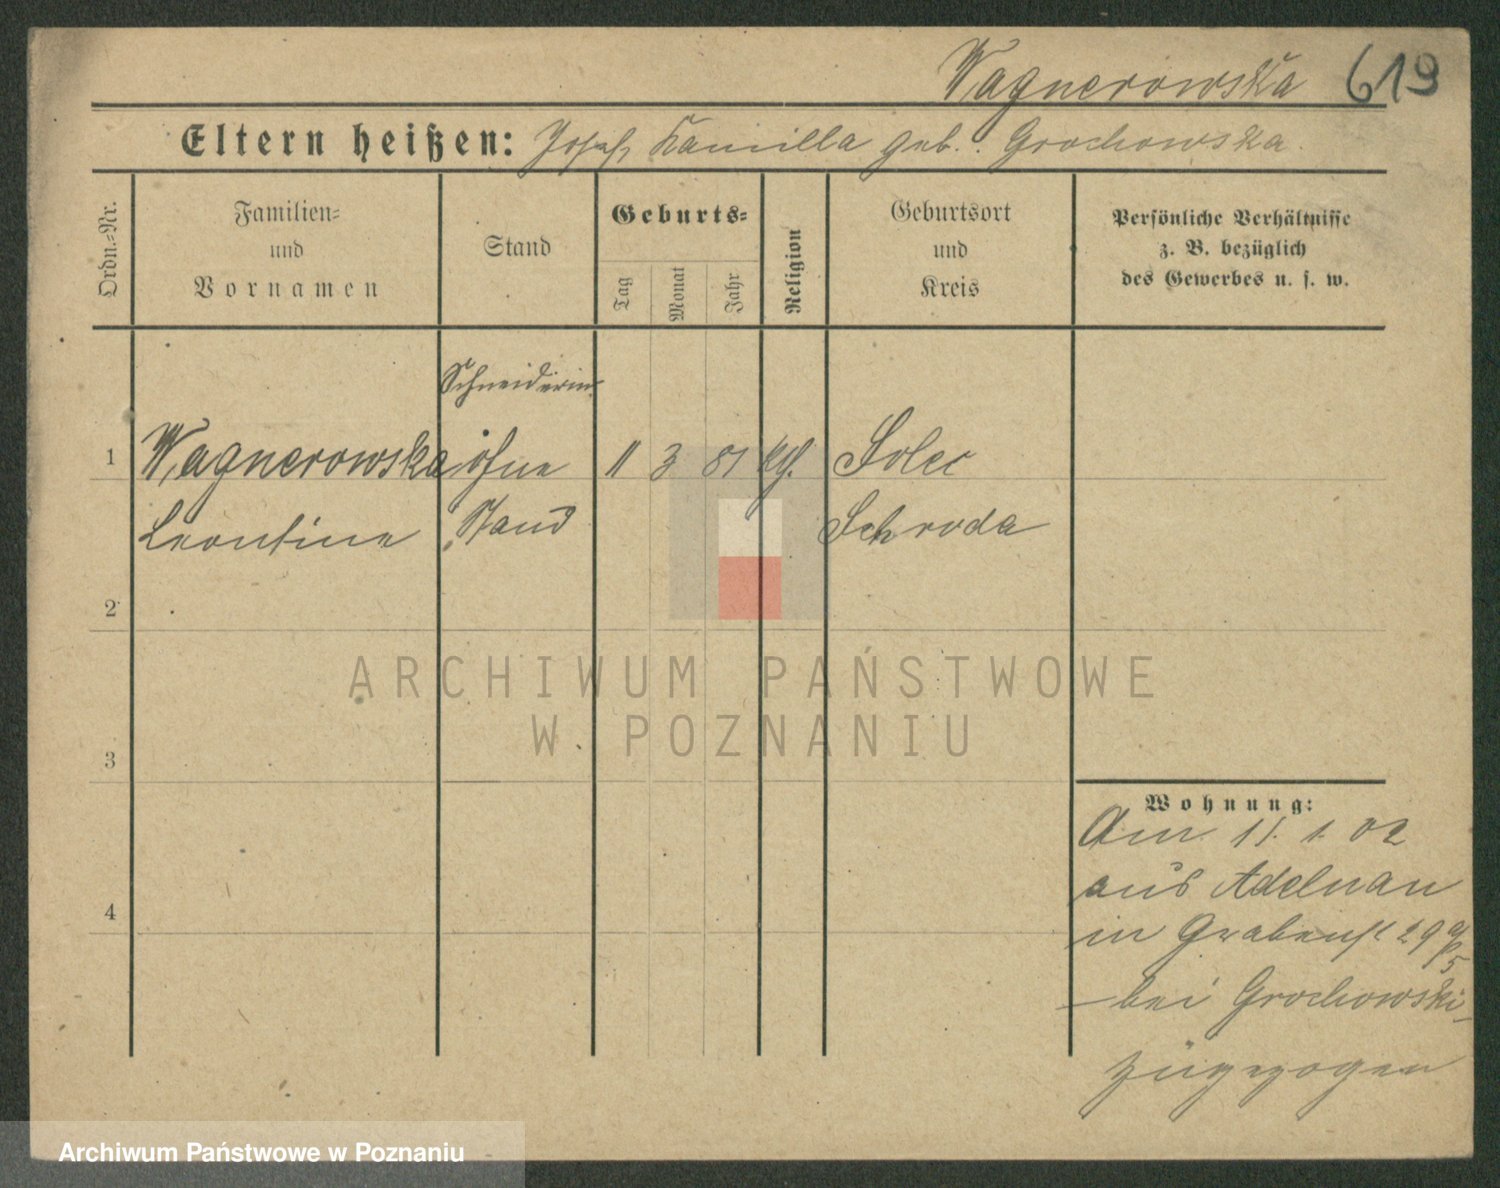 Wagnerowska 619
Eltern heißen: Josef, Kamilla geb. Grochowska.
Ordn.-Nr.
Familien-
und
Vornamen
Stand
Geburts-
Tag
Monat
Jahr
Religion
Geburtsort
und
Kreis
Persönliche Verhältnisse
z. B. bezüglich
des Gewerbes u. s. w.
Schneiderin
1 Wagnerowska ohne 11 3 81 kth. Solec
Leontine Stand Schroda
2
3
4
Wohnung:
Am 11. 1. 02
aus Adelnau
in Grabenst 29
bei Grochowski
zugezogen
ARCHIWUM PAŃSTWOWE
W POZNANIU
Archiwum Państwowe w Poznaniu